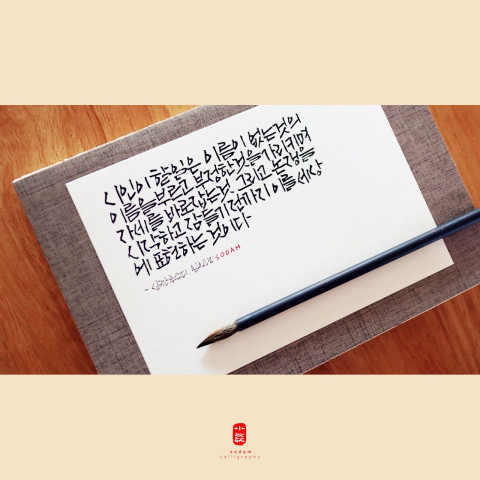 시인이 할 일은 이름이 없는 것의
이름을 부르고 부정한 것을 가리키며
자세를 바로잡는 것 그리고 논쟁을
시작하고 잠들기 전까지 이를 세상
에 표현하는 것이다.
SODAM
小談
sodam
calligraphy